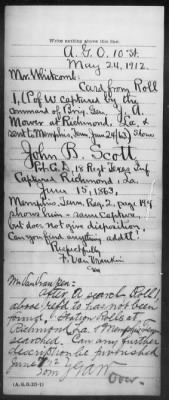 Write nothing above this line.
A.G.O. 10 St.
May 24, 1912.
Mr. Whitcomb:
Card from Roll
1, (P of W captured by the
command of Brig. Gen.
Mower at Richmond, La., &
sent to Memphis, Tenn., Show
John B. Scott
Pvt. G, 18 Regt Texas Inf
Captured Richmond, La
June 15, 1863.
Memphis, Tenn. Reg. 2, page 148
shows him - same Capture,
but does not give disposition.
Can you find anything addtl?
Respectfully
After a search Roll 1,
above ref'd to has not been
found. Station Rolls at
Richmond La & Memphis Tenn
searched. Can any further
description be furnished
Over.
(A.G.O. 22-1)